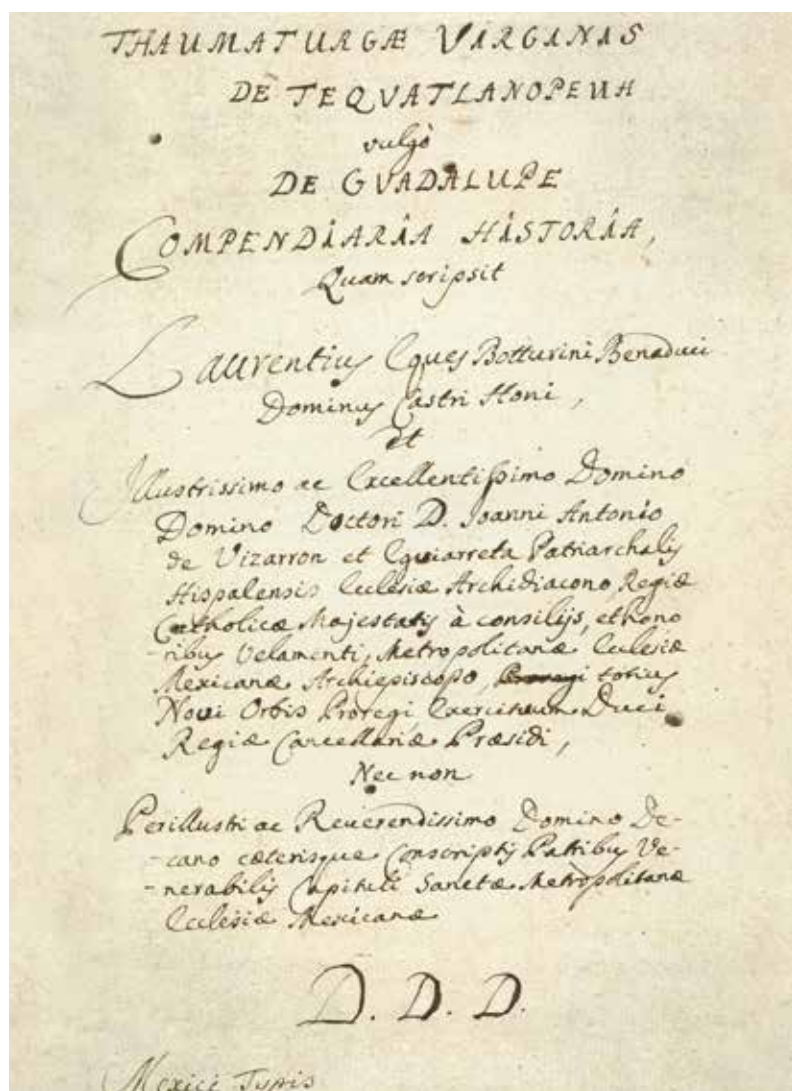 THAUMATURGÆ VIRGINIS
DE TEQVATLANOPEUH
vulgò
DE GVADALUPE
COMPENDIARIA HISTORIA,
Quam scripsit
Laurentius Eques Botturini Benaduci
Dominus Castri Honi,
Et
Illustrissimo ac Excellentissimo Domino
Domino Doctori D. Joanni Antonio
de Vizarron et Eguiarreta Patriarchalis
Hispalensis Ecclesiæ Archidiacono, Regiæ
Catholicæ Majestatis à consilijs, et hono
-ribus Velamenti, Metropolitanæ Eclesiæ
Mexicanæ Archiepiscopo, Proregi totius
Novi Orbis Proregi Exercituum Duci
Regiæ Cancellariæ Præsidi,
Nec non
Perillustri ac Reuerendissimo Domino De-
-cano cæterisque Conscriptis Patribus Ve-
-nerabilis Capituli Sanctæ Metropolitanæ
Eclesiæ Mexicanæ
D. D. D.
Mexici Typis